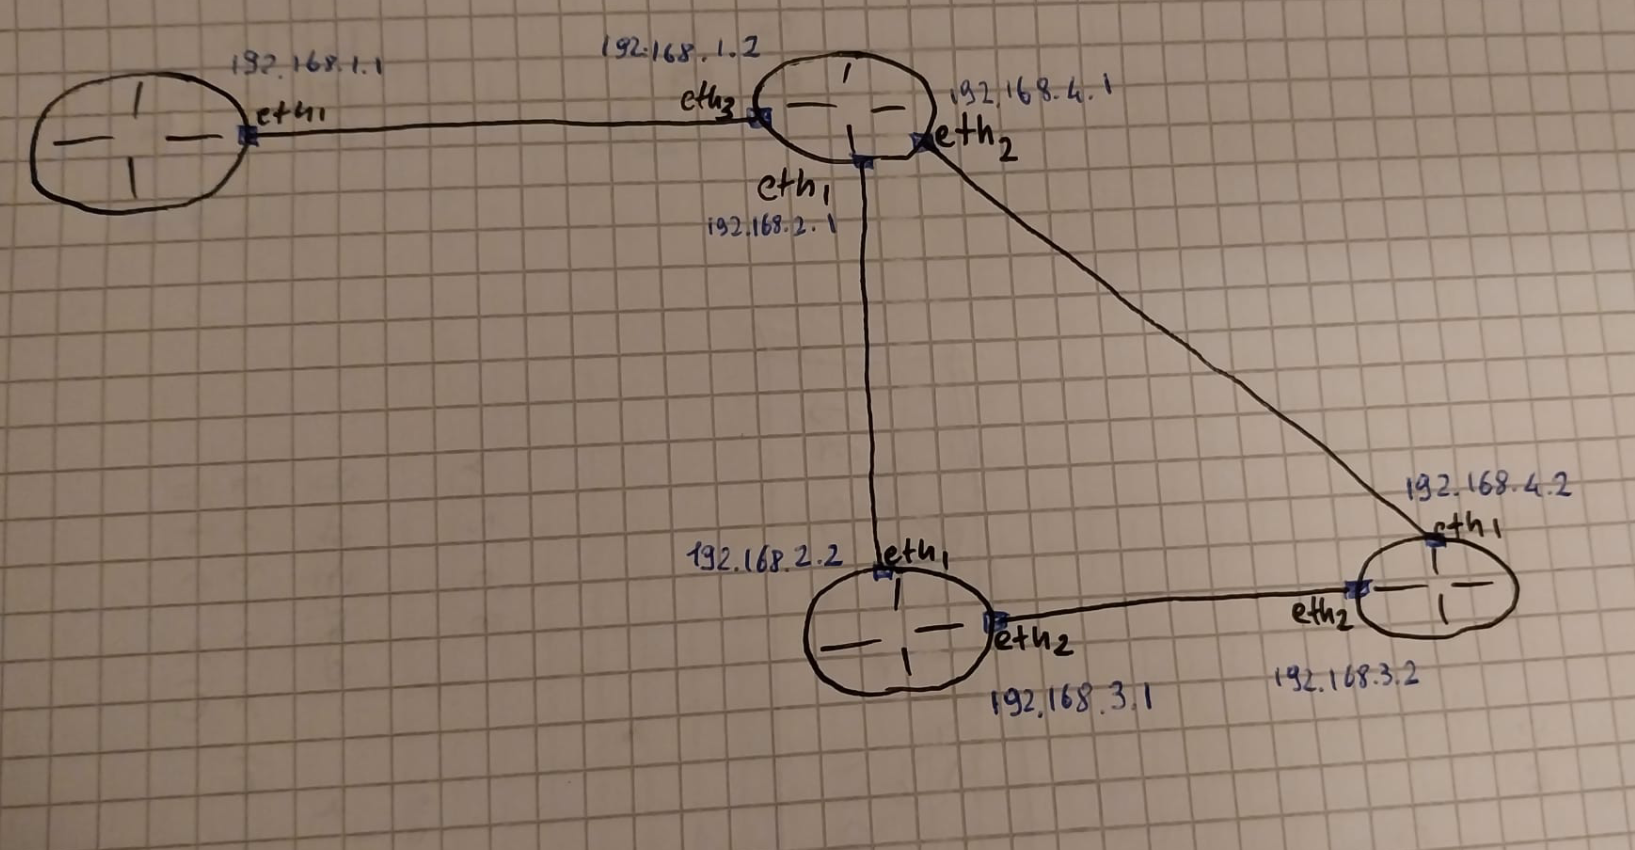 192.168.1.1
eth1
192.168.1.2
eth3
192.168.4.1
eth2
eth1
192.168.2.1
192.168.4.2
eth1
192.168.2.2
eth1
eth2
192.168.3.1
eth2
192.168.3.2